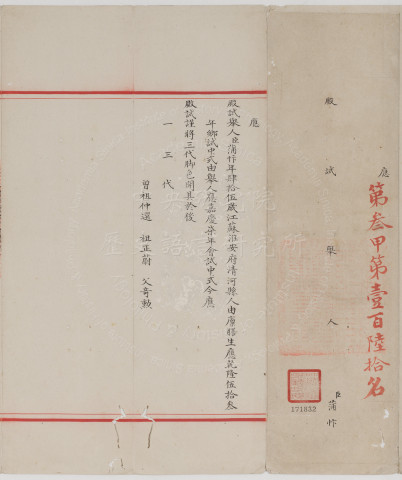 應
殿試舉人臣蒲忭
第叁甲第壹百陸拾名
171832
應
殿試舉人臣蒲忭年肆拾伍歲江蘇淮安府清河縣人由廩膳生應乾隆伍拾叁
年鄉試中式由舉人應嘉慶柒年會試中式今應
殿試謹將三代脚色開具於後
一三代
曾祖仲選 祖正蔚 父奇勲